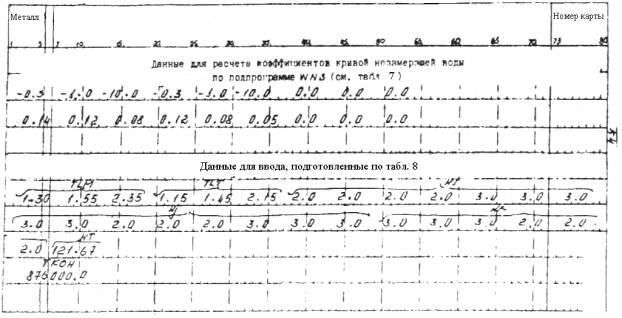 Металл Номер карты
1 5 7 10. 15. 20 25 30 35 40 45 50 60 65 70 73 80
Данные для расчета коэффициентов кривой незамерзшей воды
по подпрограмме WNS (см. табл. 7)
-0.3 -1.0 -10.0 -0.3 -1.0 -10.0 0.0 0.0 0.0
0.14 0.12 0.08 0.12 0.08 0.05 0.0 0.0 0.0
Данные для ввода, подготовленные по табл. 8
TLM TLT
1.30 1.55 2.35 1.15 1.45 2.15 2.0 2.0 2.0 2.0 3.0 3.0 3.0
3.0 3.0 2.0 2.0 2.0 3.0 3.0 3.0 3.0 3.0 2.0 2.0
HT
2.0 121.67
TKOH
876000.0